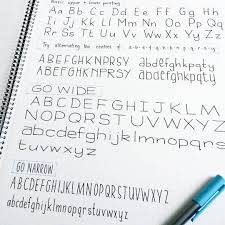 Basic upper + lower printing
Aa Bb Cc Dd Ee Ff Gg Hh Ii
Jj Kk Ll Mm Nn Oo Pp Qq
Rr Ss Tt Uu Vv Ww Xx Yy Zz
Try alternating the centres of
ABEFGHKNPRSY abdeghkpqty
ABEFGHKNPRSY abdeghkpqty
GO WIDE
ABCDEFGHIJKLM
NOPQRSTUVWXYZ
abcdefghijklmnopqr
stuvwxyz
GO NARROW
ABCDEFGHIJKLMNOPQRSTUVWXYZ
abcdefghijklmnopqrstuvwxyz